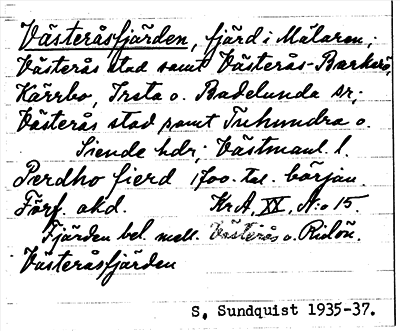 Västeråsfjärden, fjärd i Mälaren;
Västerås stad samt Västerås-Barkarö,
Kärrbo, Irsta o. Badelunda sr;
Västerås stad samt Tuhundra o.
Siende hdr; Västmanl. l.
Perdho fierd 1700-tal. början.
Förf. okd. KrA, XX, N:o 15.
Fjärden bel. mell. Västerås o. Ridön.
Västeråsfjärden
S. Sundquist 1935-37.